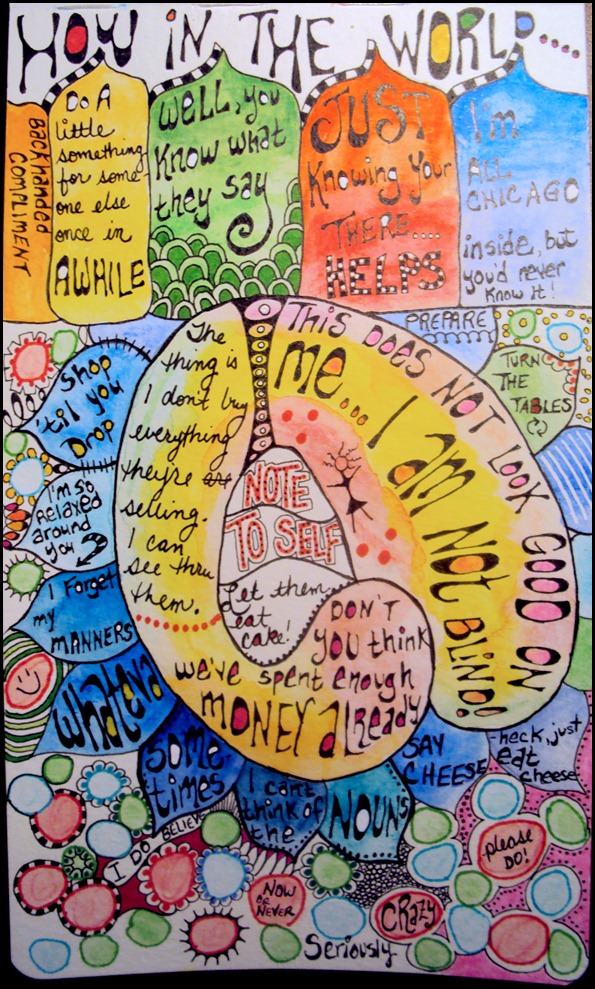 HOW IN THE WORLD....
Backhanded
COMPLIMENT
DO A
little
something
for some-
one else
once in
AWHILE
Well, you
Know what
they say
JUST
Knowing Your
THERE....
HELPS
I'm
ALL
CHICAGO
inside, but
you'd never
Know It!
PREPARE
TURN
THE
TABLES
THIS DOES NOT LOOK GOOD ON
ME... I AM NOT BLIND!
The
thing is
I don't buy
everything
they're
selling.
I can
see thru
them.
Shop
'til you
Drop
I'm so
Relaxed
around
you
I Forget
my
MANNERS
whateva
NOTE
TO SELF
Let them
eat
cake!
DON'T
you think
we've spent enough
MONEY already
SOME
times
I can't
think of
the
NOUNS
SAY
CHEESE
heck, just
eat
cheese
I DO BELIEVE
please
DO!
NOW
OR
NEVER
CRAZY
Seriously